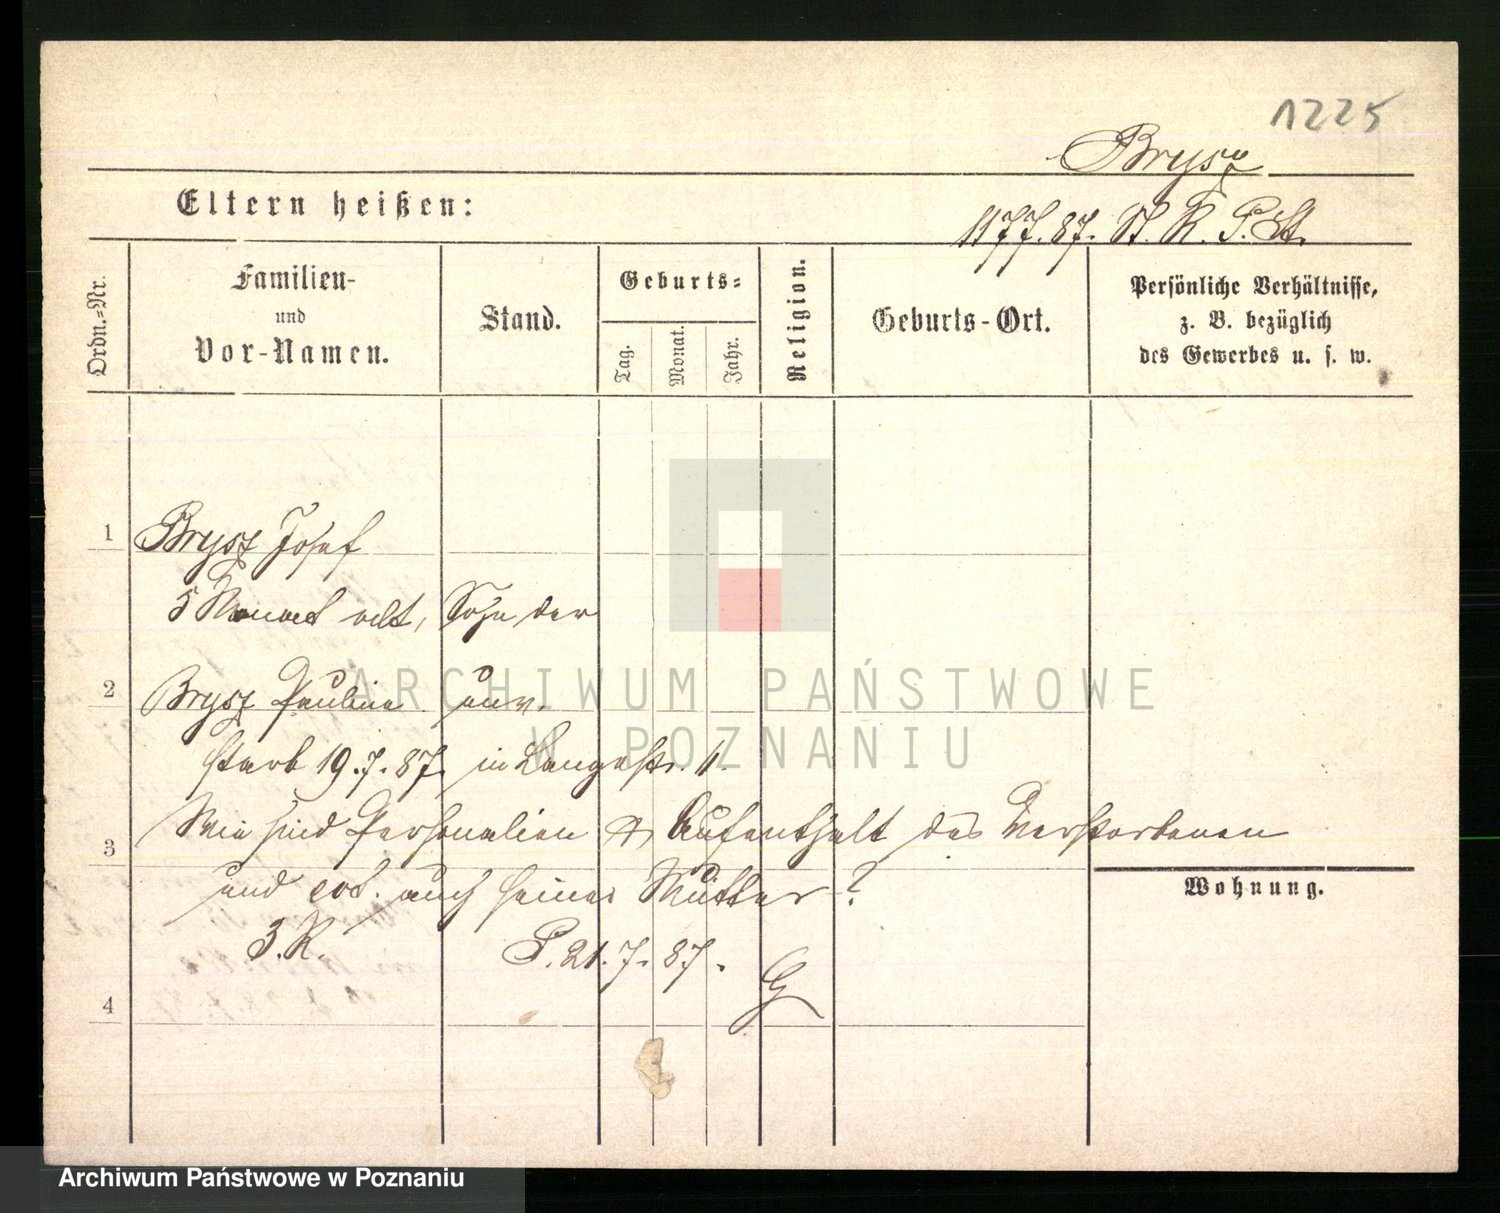 1225
Brysz
Eltern heißen:
1177.87. St. R. P. St.
Ordn.-Nr.
Familien-
und
Vor-Namen.
Stand.
Geburts-
Tag.
Monat.
Jahr.
Religion.
Geburts-Ort.
Persönliche Verhältnisse,
z. B. bezüglich
des Gewerbes u. s. w.
1
Brysz Josef
5 Monat alt, Sohn der
2
Brysz Pauline unv.
starb 19.7.87. in Langestr. 11.
Wie sind Personalien & Aufenthalt des Verstorbenen
3
und evt. auch seiner Mutter?
Wohnung.
3. R. P. 21.7.87.
4
ARCHIWUM PAŃSTWOWE
W POZNANIU
Archiwum Państwowe w Poznaniu